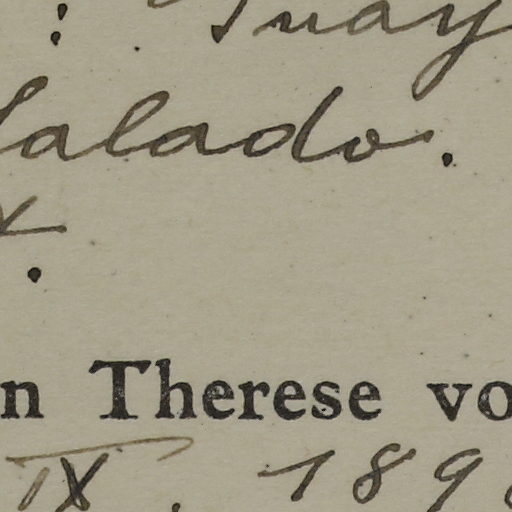 : Guay
Salado.
n Therese vo
IX. 189